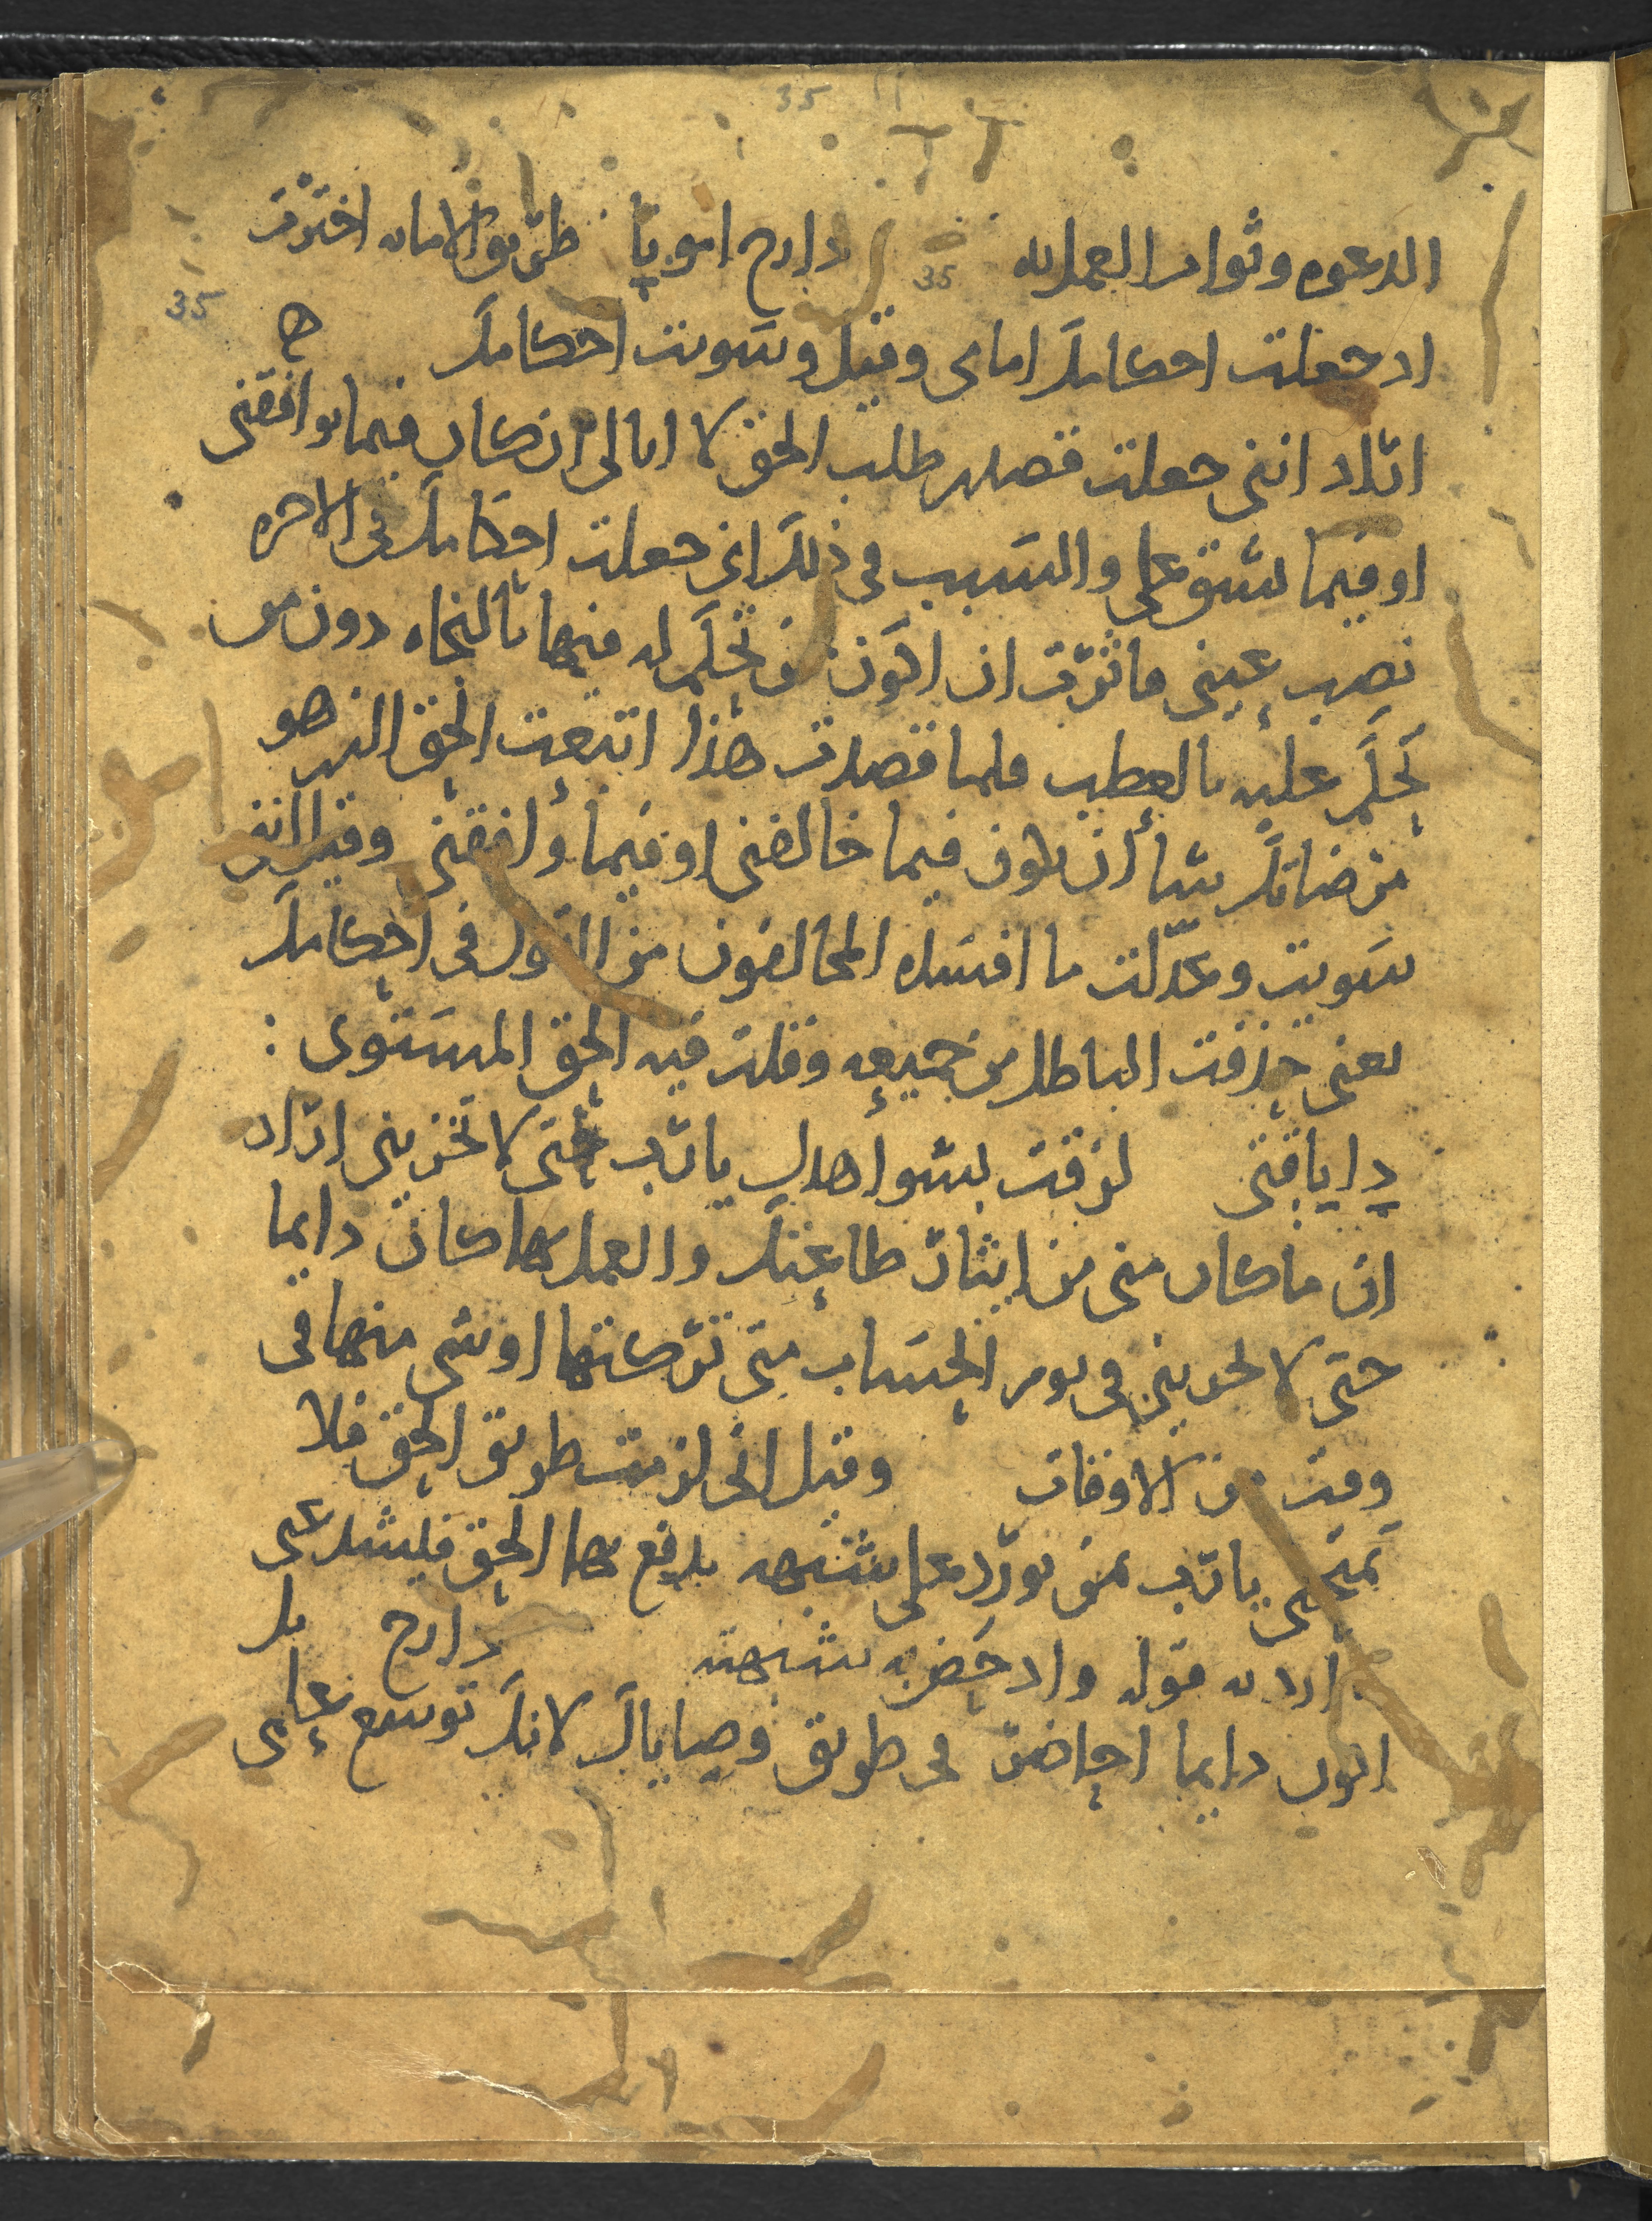 35
الدعوه وثواب العمل به 35 دارح امونا طريق الامانه اخترت
35
اد جعلت احكامك امامى وقيل وسويت احكامك
اراد انني جعلت قصدى طلب الحق لا ابالى ان كان فيما يوافقني
او فيما يشق على والسبب فى ذلك انى جعلت احكامك فى الاخره
نصب عينى فاثرت ان اكون من تحكم له فيها بالنجاه دون من
تحكم عليه بالعطب فلما قصدت هذا اتبعت الحق الذى هو
مرضاتك بتا ان يكون فيما خالفنى او فيما وافقنى وقيل اننى
سويت وعدلت ما افسده المخالفون من القول فى احكامك
يعنى حذفت الباطل من جميعه وقلت فيه الحق المستوى :
دايا قتى لزقت بشواهدك يا رب حتى لا تخزينى اراد
ان ما كان منى من ايثار طاعتك والعمل بها كان دايما
حتى لا تخزينى فى يوم الحساب متى تركتها او شى منها فى
وقت من الاوقات وقيل انى لزمت طريق الحق فلا
تمتحنى يا رب بمن يورد على شبهه يدفع بها الحق فليشد عنى
ارد به قوله وادحض به شبهته دارح بل
اكون دايما احاضر فى طريق وصاياك لانك توسع على